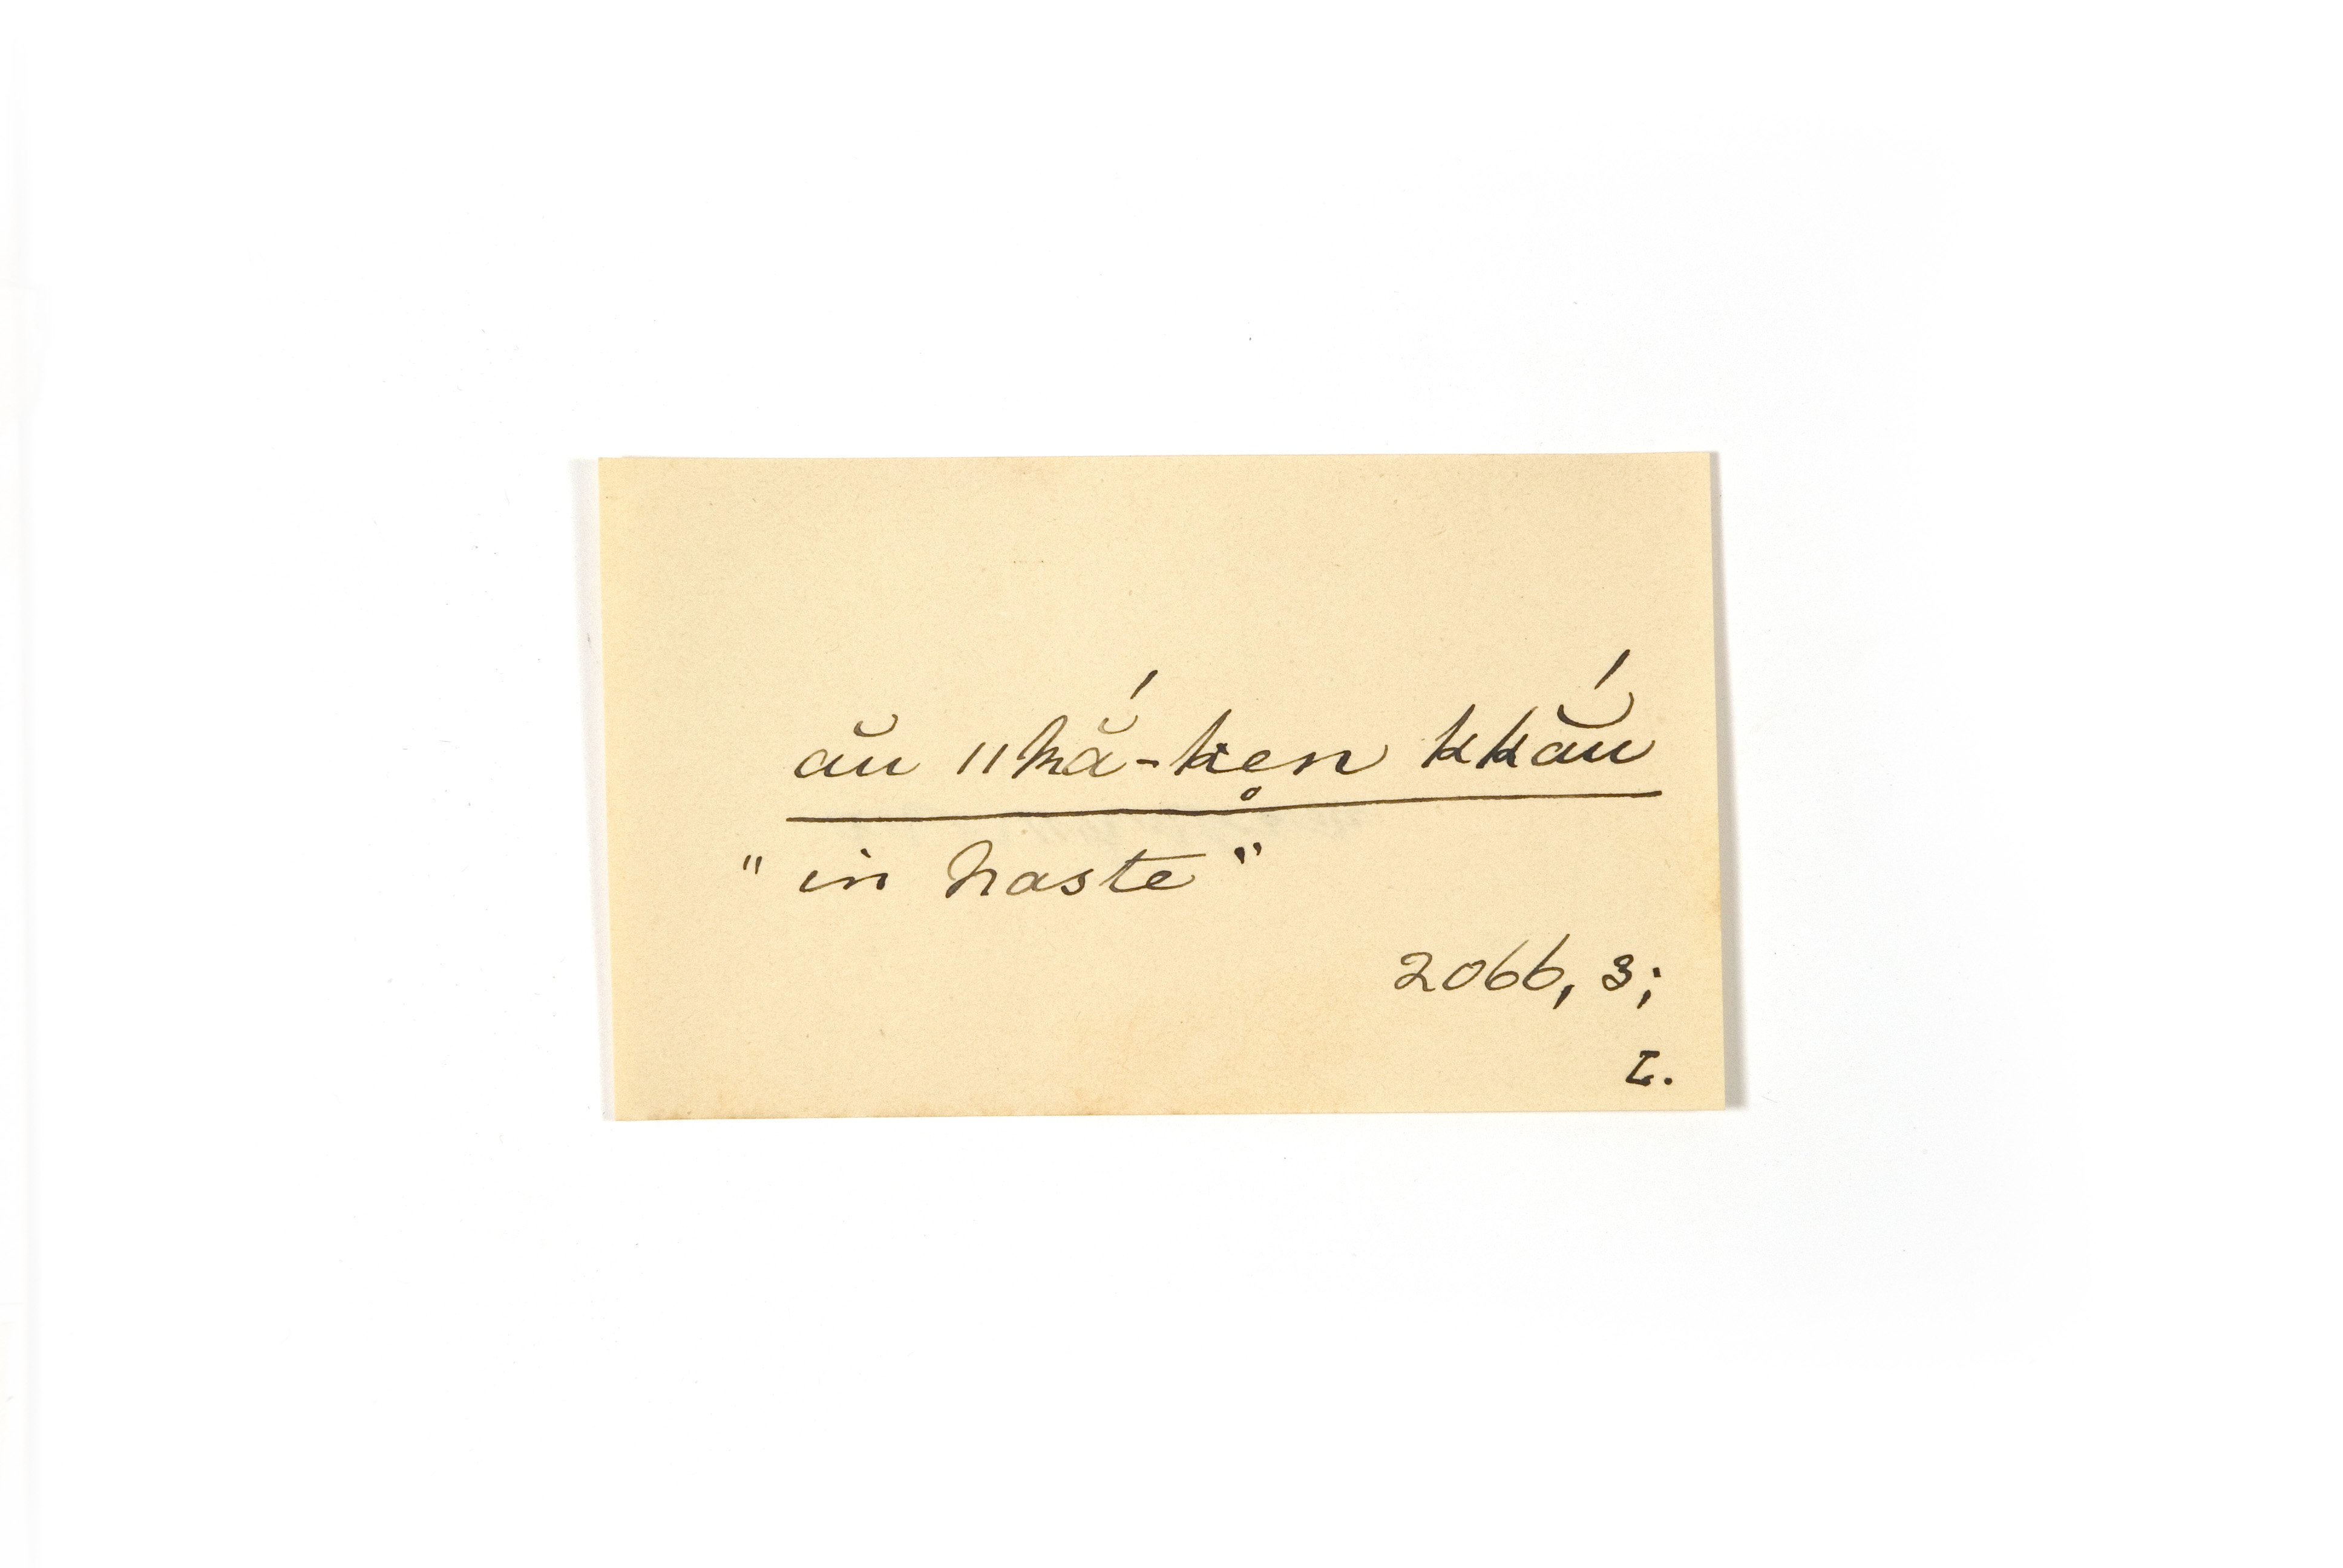 ău ǁhắ-ken̥ kkắu
"in haste"
2066, 3;
L.